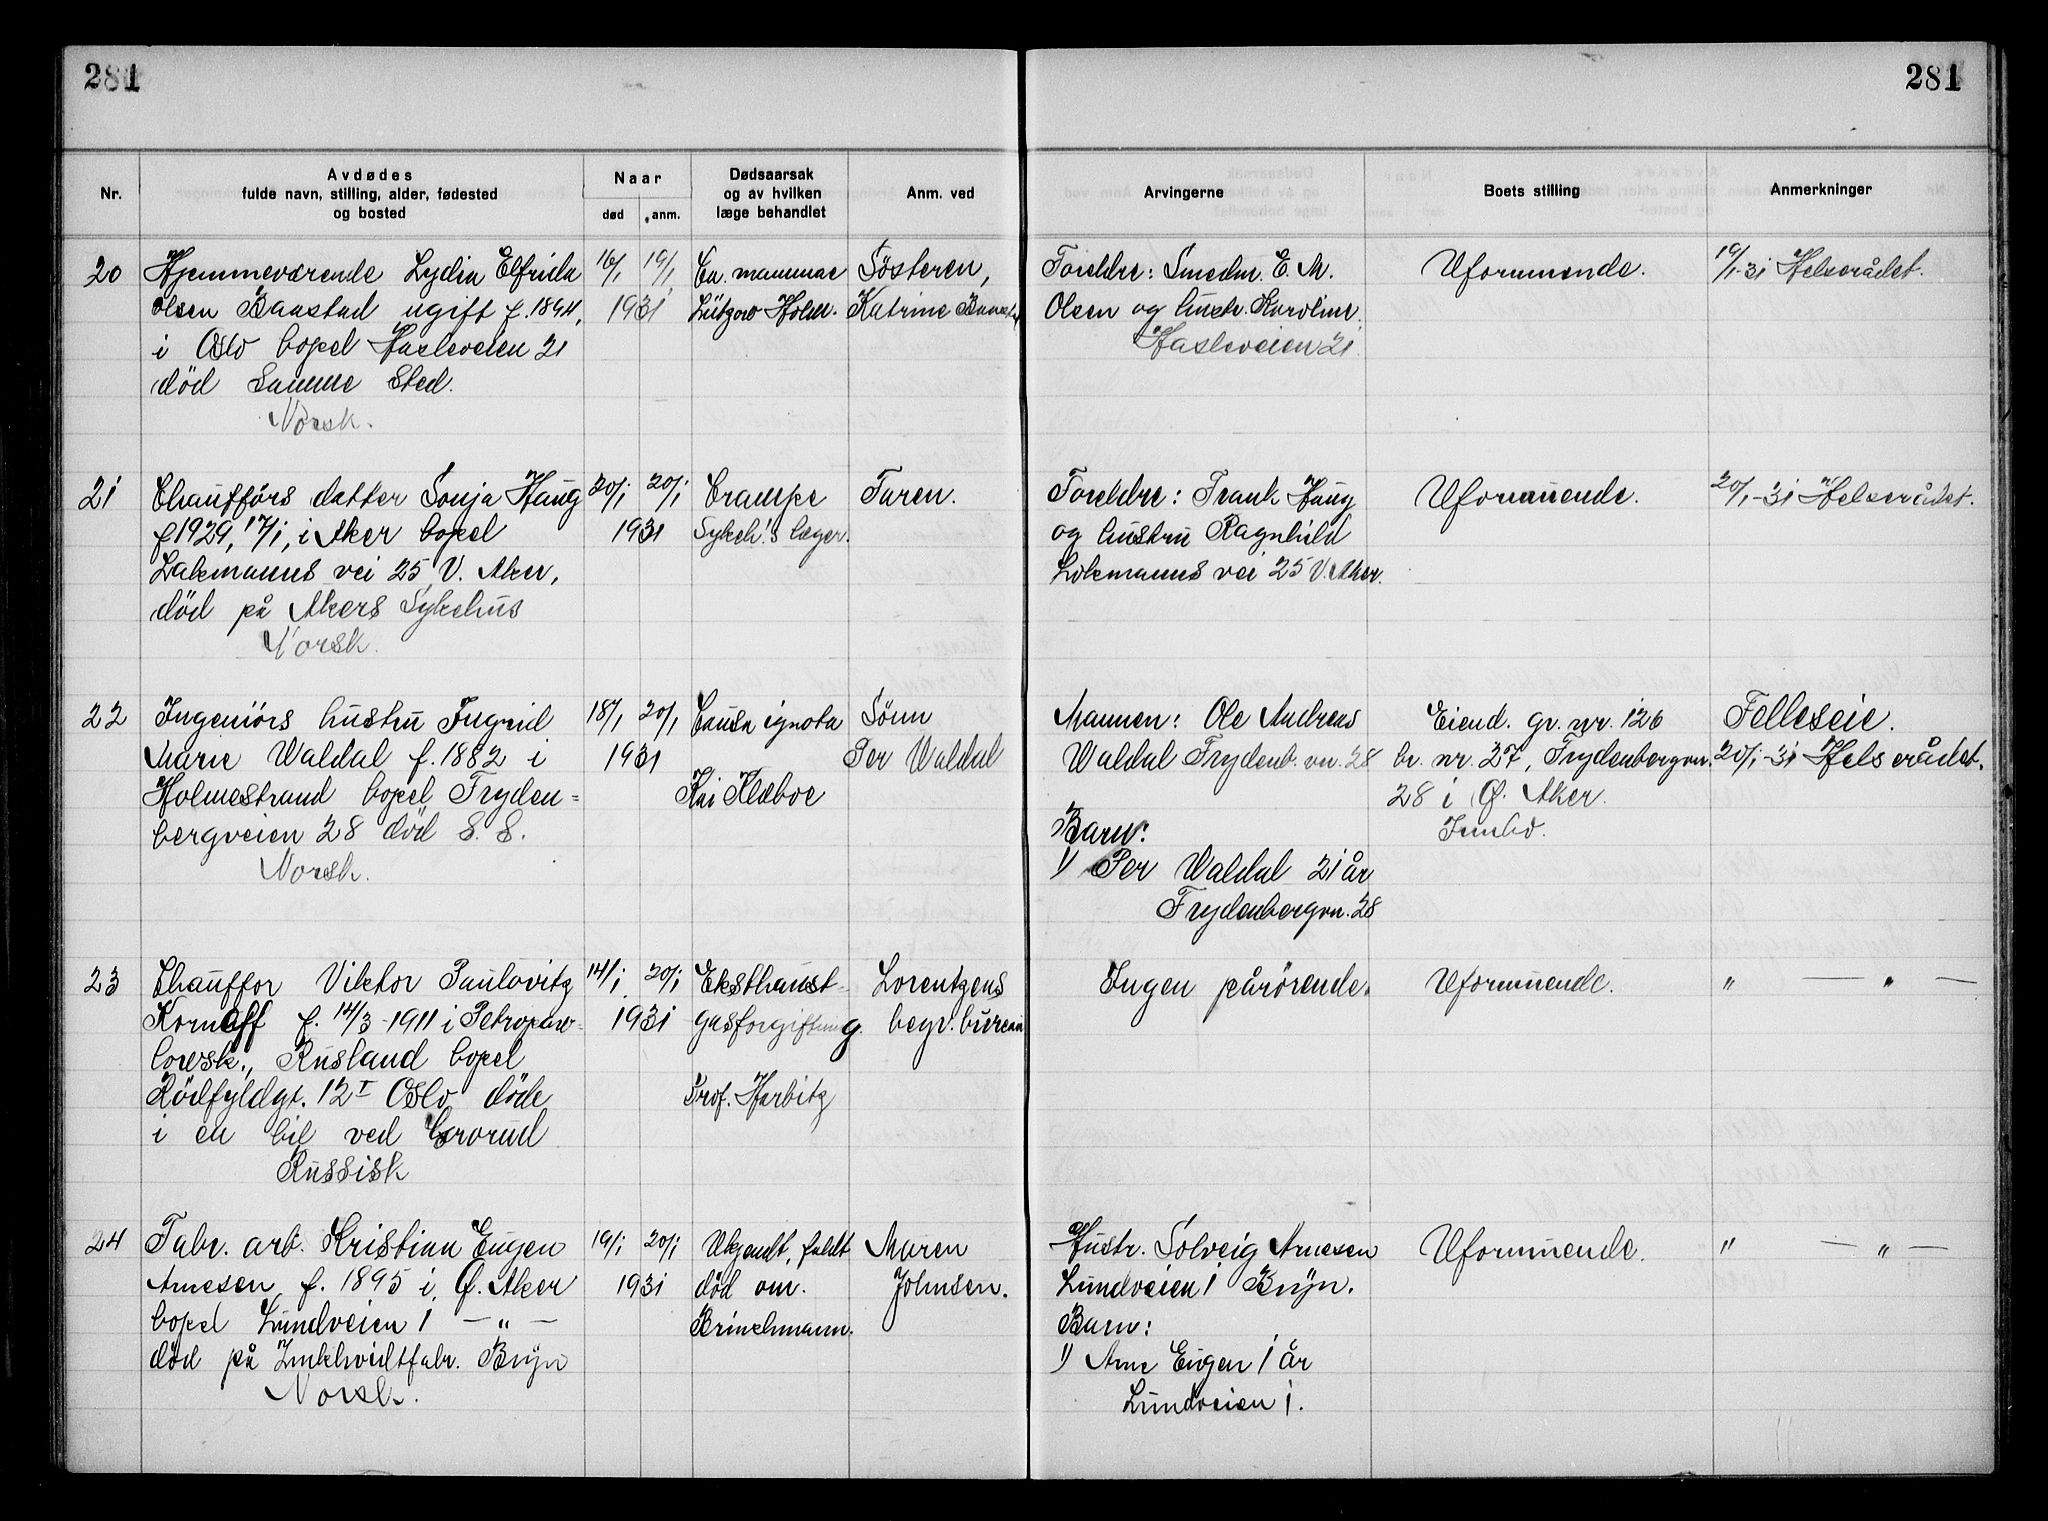 281
281
Nr.
Avdødes
fulde navn, stilling, alder, fødested
og bosted
Naar
død
anm.
Dødsaarsak
og av hvilken
læge behandlet
Anm. ved
Arvingerne
Boets stilling
Anmerkninger
20
Hjemmeværende Lydia Elfrida
Olsen Baastad ugift f. 1894,
i Oslo bopel Hasleveien 21
død samme sted.
Norsk.
16/1 19/1
1931
Ca. mammae
Lützow Holm.
Søsteren,
Katrine
Foreldre: Smedm. E. M.
Olsen og hustr. Karoline.
Hasleveien 21.
Uformuende.
19/1-31 Helserådet.
21
Chaufførs datter Sonja Haug
f 1929, 17/1, i Aker bopel
Lakmanns vei 25 V. Aker,
død på Akers Sykehus
Norsk.
20/1 20/1
1931
Crampe
Sykeh!s læger.
Faren.
Foreldre: Frank Haug
og hustru Ragnhild
Lokmanns vei 25 V. Aker.
Uformuende.
20/1-31 Helserådet.
22
Ingeniørs hustru Ingrid
Marie Waldal f. 1882 i
Holmestrand bopel Fryden=
bergveien 28 død s. s.
Norsk.
18/1 20/1
1931
Causa ignota
Kai Klæboe
Sønn
Per Waldal
Mannen: Ole Andreas
Waldal Frydenb. vn. 28
Barn:
1) Per Waldal 21 år
Frydenbergvn. 28
Eiend. gr. nr. 126
br. nr. 27, Frydenbergvn.
28 i Ø. Aker.
Innbo.
Felleseie.
20/1-31 Helserådet.
23
Chauffør Viktor Paulovitz
Korneff f. 14/3-1911 i Petropaw-
lowsk., Rusland bopel
Rödfyldgt. 12 I Oslo døde
i en bil ved Grorud
Russisk
14/1 20/1
1931
Eksthaust-
gasforgiftning.
Prof. Harbitz
Lorentzens
begr. bureau
Ingen pårørende.
Uformuende.
" — " —
24
Fabr. arb. Kristian Eugen
Arnesen f. 1895 i Ø. Aker
bopel Lundveien 1 — " —
død på Zinkhvidtfabr. Bryn
Norsk.
19/1 20/1
1931
Ukjendt, faldt
død om.
Brinchmann.
Maren
Johnsen.
Hustr. Solveig Arnesen
Lundveien 1 Bryn.
Barn:
1) Arne Eugen 1 år
Lundveien 1.
Uformuende.
" — " —